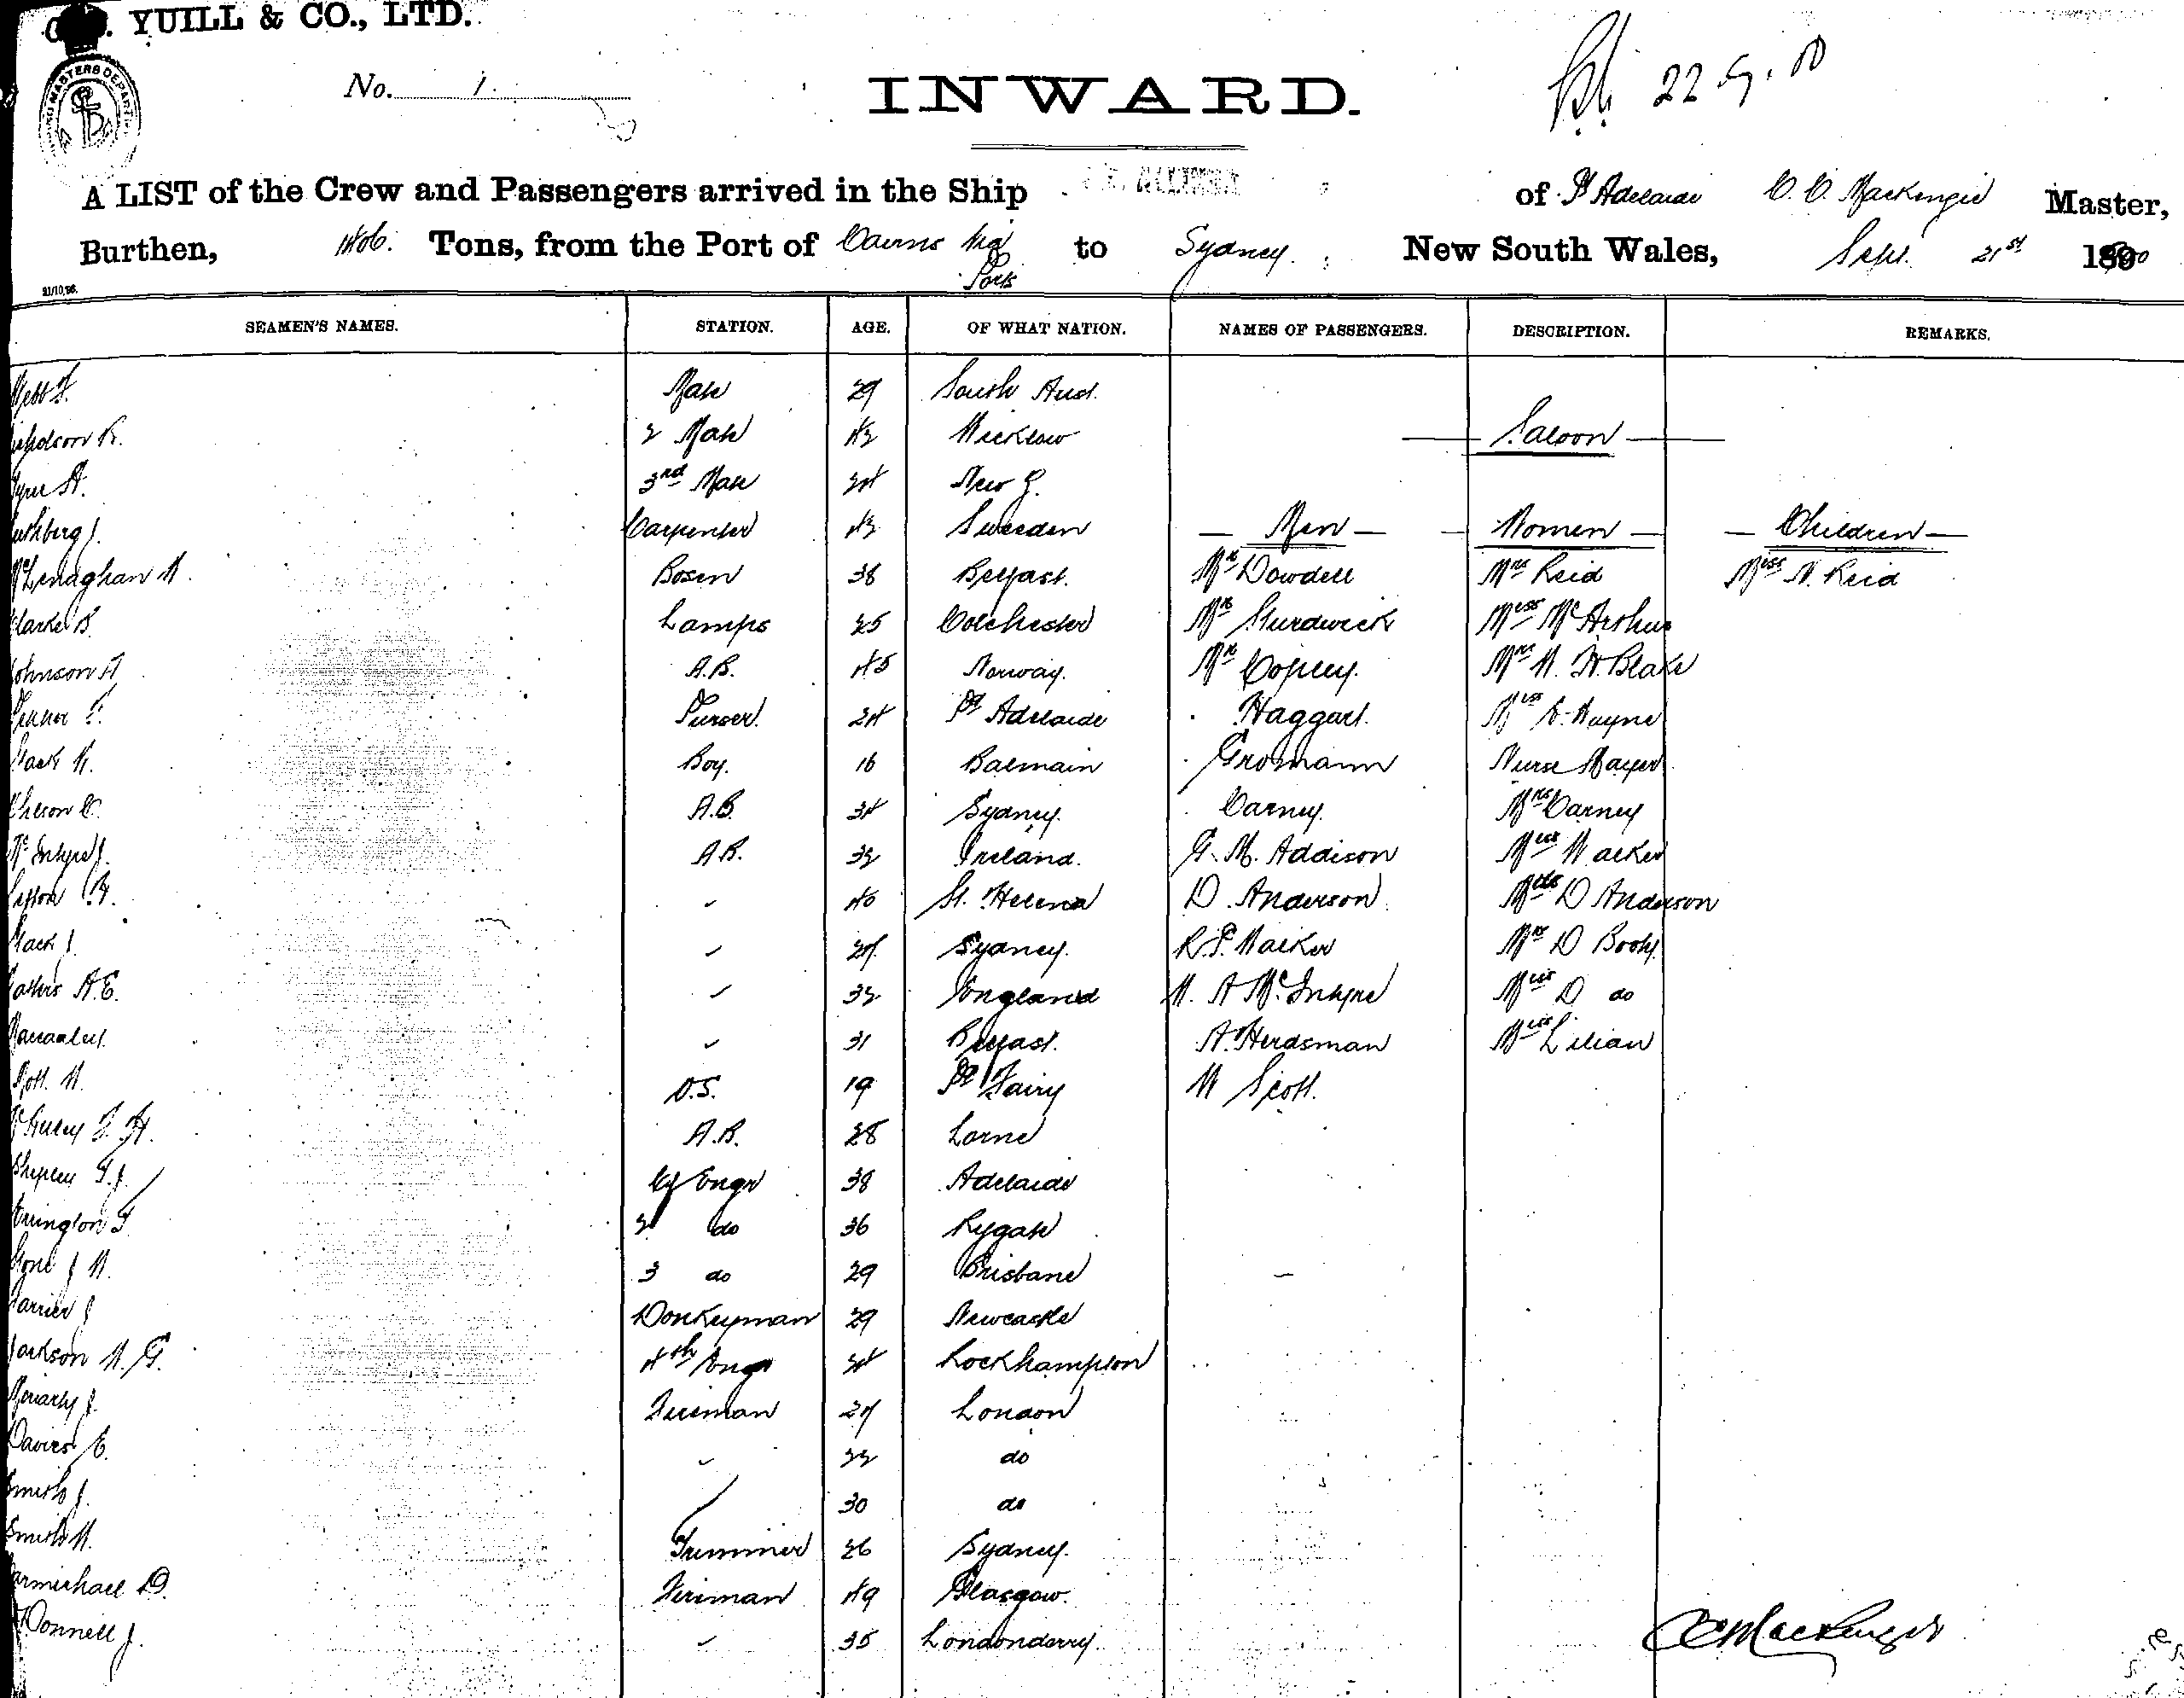 YUILL & CO., LTD.
No. 1.
INWARD.
22.9.00
A LIST of the Crew and Passengers arrived in the Ship of Pt Adelaide C. C. Mackenzie Master,
Burthen, Tons, from the Port of Cairns to Sydney. New South Wales, Sept. 21st 189
Ports
21/10/98.
SEAMEN'S NAMES. STATION. AGE. OF WHAT NATION. NAMES OF PASSENGERS. DESCRIPTION. REMARKS.
Webb F. Mate 29 South Aust.
2 Mate 42 Wicklow Saloon
3rd Mate 24
Carpenter 42 Sweeden Men Women Children
McLenaghan W. Bosen 38 Belfast. Mr Dowdell Mrs Reid Miss N. Reid
Clarke B. Lamps 25 Colchester Mr Sturdwick Miss McArthur
Johnson A A.B. 45 Norway. Mr Copley. Mrs W. H. Blake
Purser. 24 Pt Adelaide Haggart. Miss E. Wayne
Boy. 16 Balmain Gromann Nurse
A.B. 34 Sydney. Carney. Mrs Carney
McIntyre J. A.B. 32 Ireland. G. M. Addison Miss Walker
40 St. Helena D. Anderson Miss D Anderson
24 Sydney. R. P. Walker Mrs D Booty.
A.E. 32 England W. A McIntyre Miss D do
31 Belfast. A. Herdsman Miss Lilian
W. O.S. 19 Pt Fairy W Scott.
A.B. 28 Lorne
Shepley T. J. Cf Engr 38 Adelaide
2 do 36 Rygate
3 do 29 Brisbane
Donkeyman 29 Newcastle
Jackson W. G. 4th Engr 24 Rockhampton
Moriarty J. Fireman 24 London
Davies E. 22 do
Smith J. 30 do
Smith W. Trimmer 26 Sydney.
Carmichael D. Fireman 49 Glasgow.
McDonnell J. 35 Londonderry.
CCMackenzie